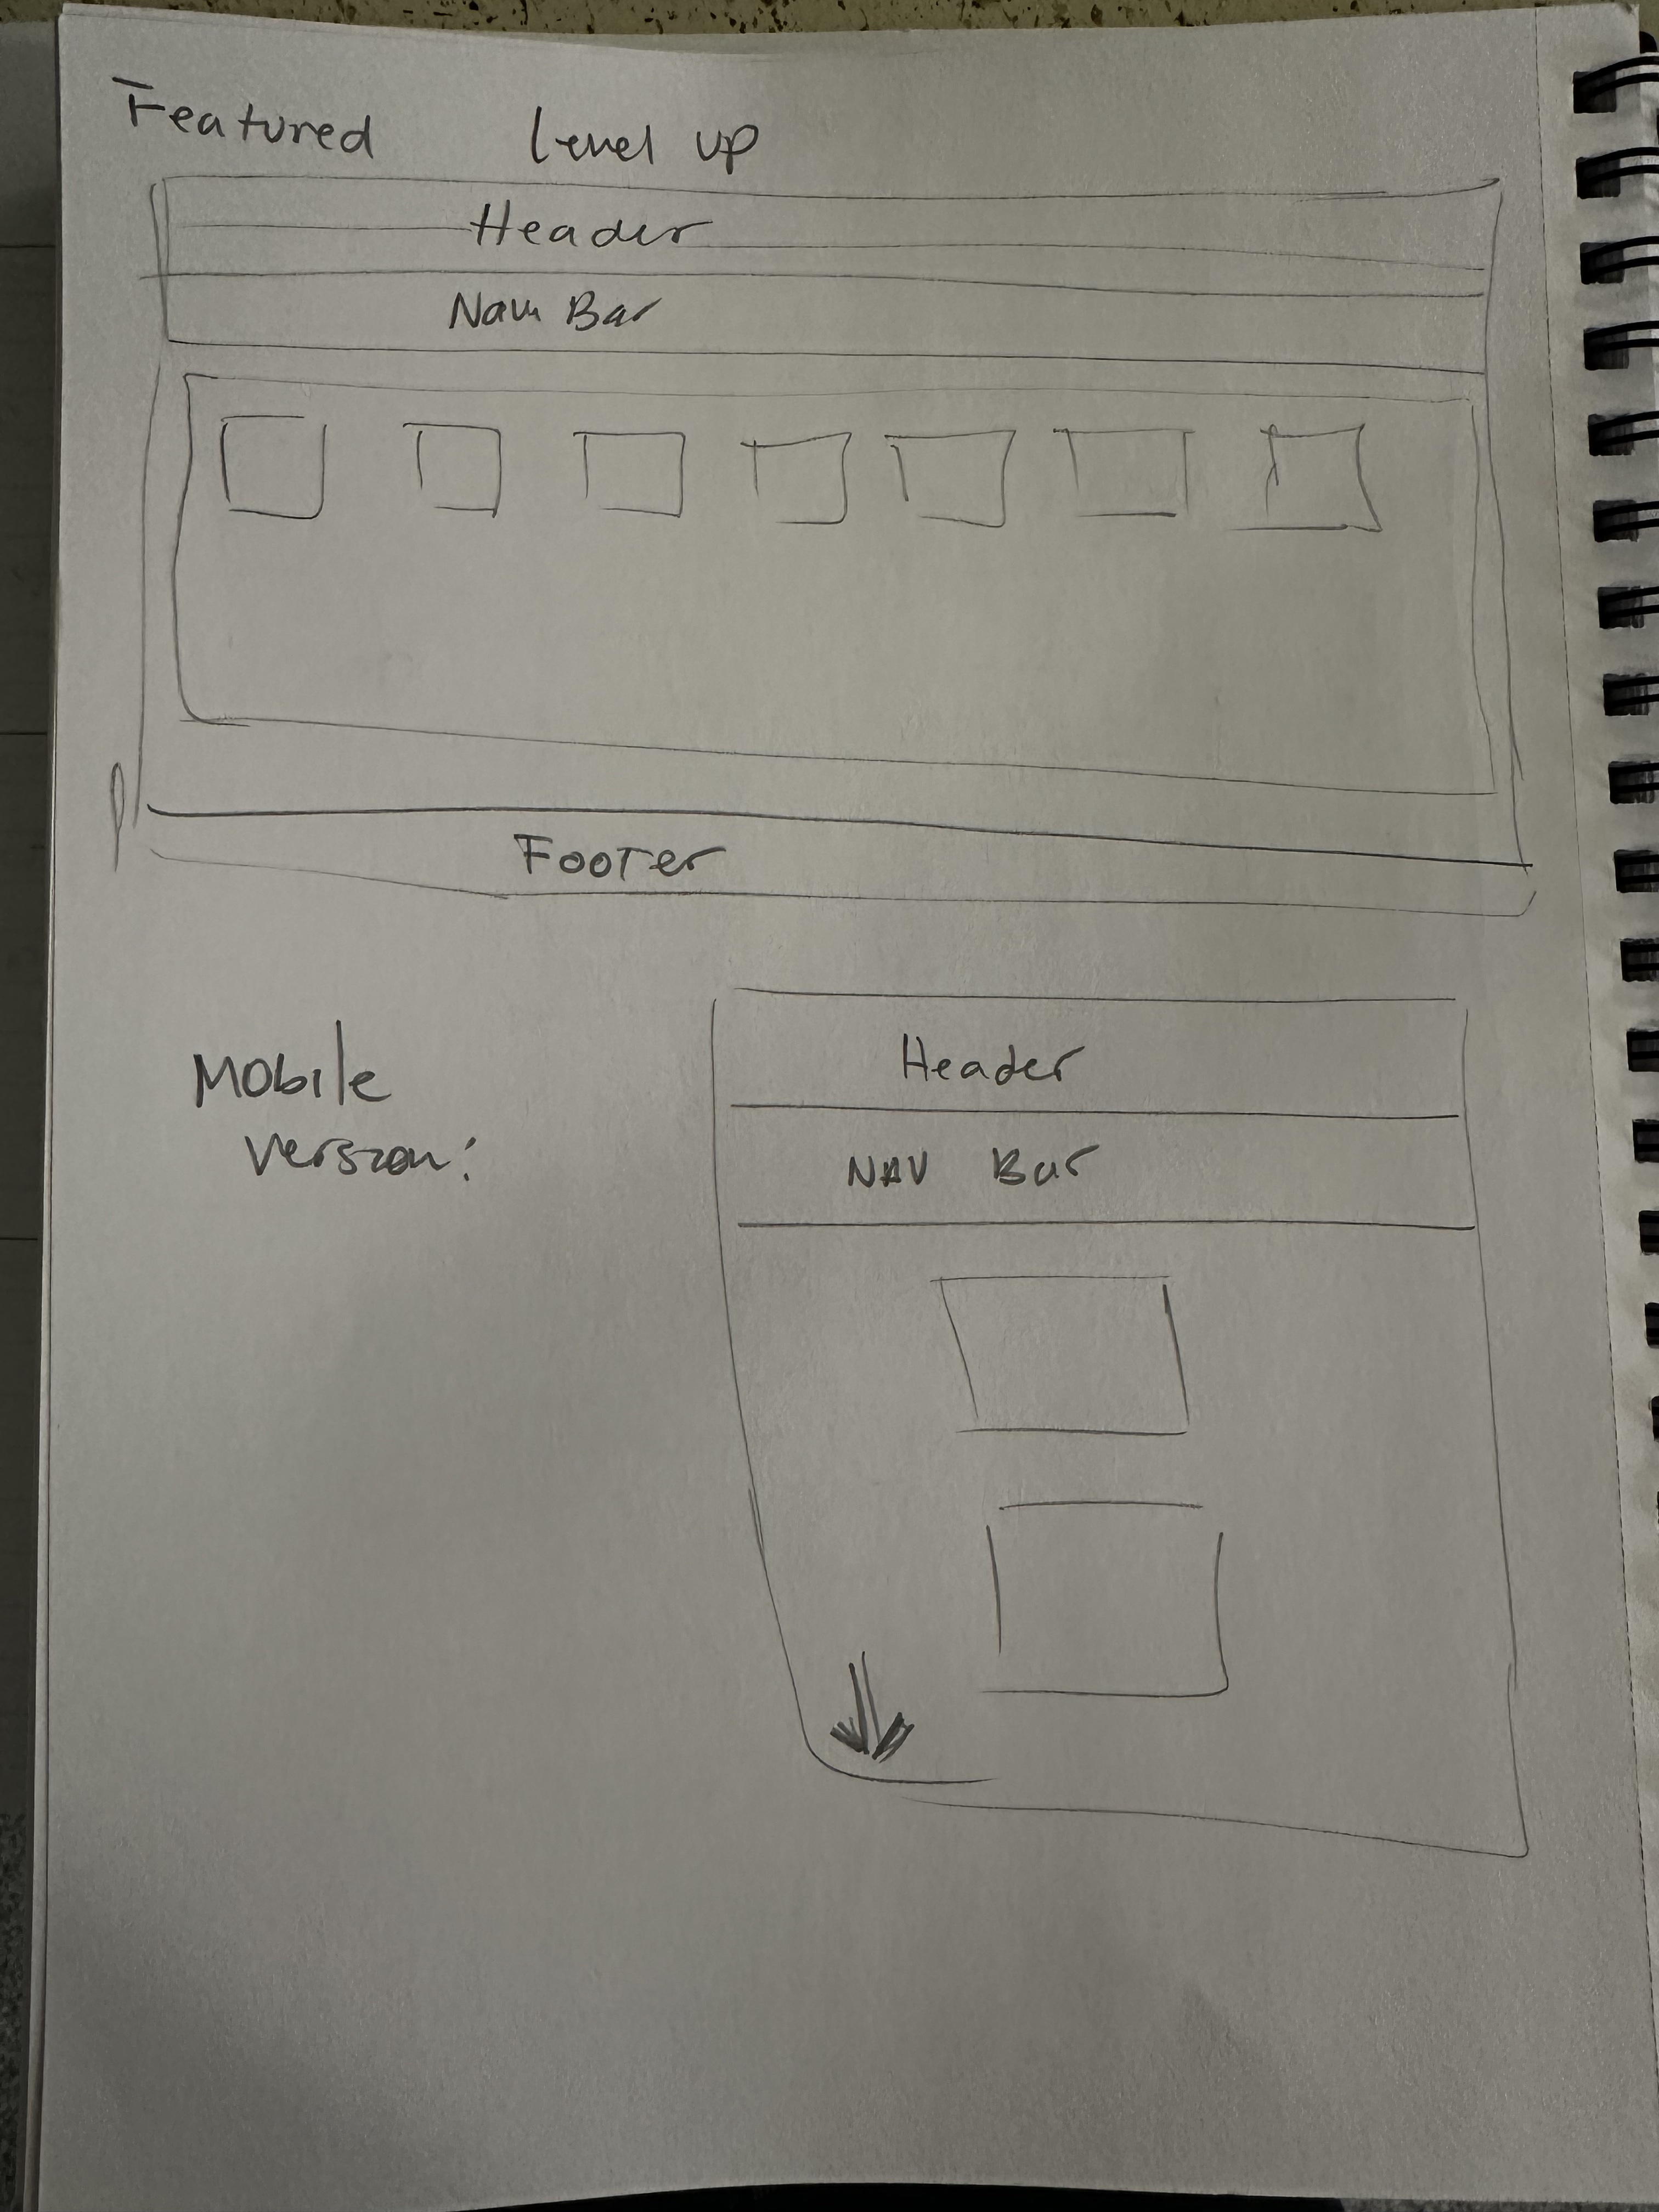 Featured level up
Header
Nav Bar
Footer
Mobile
version:
Header
NAV Bar